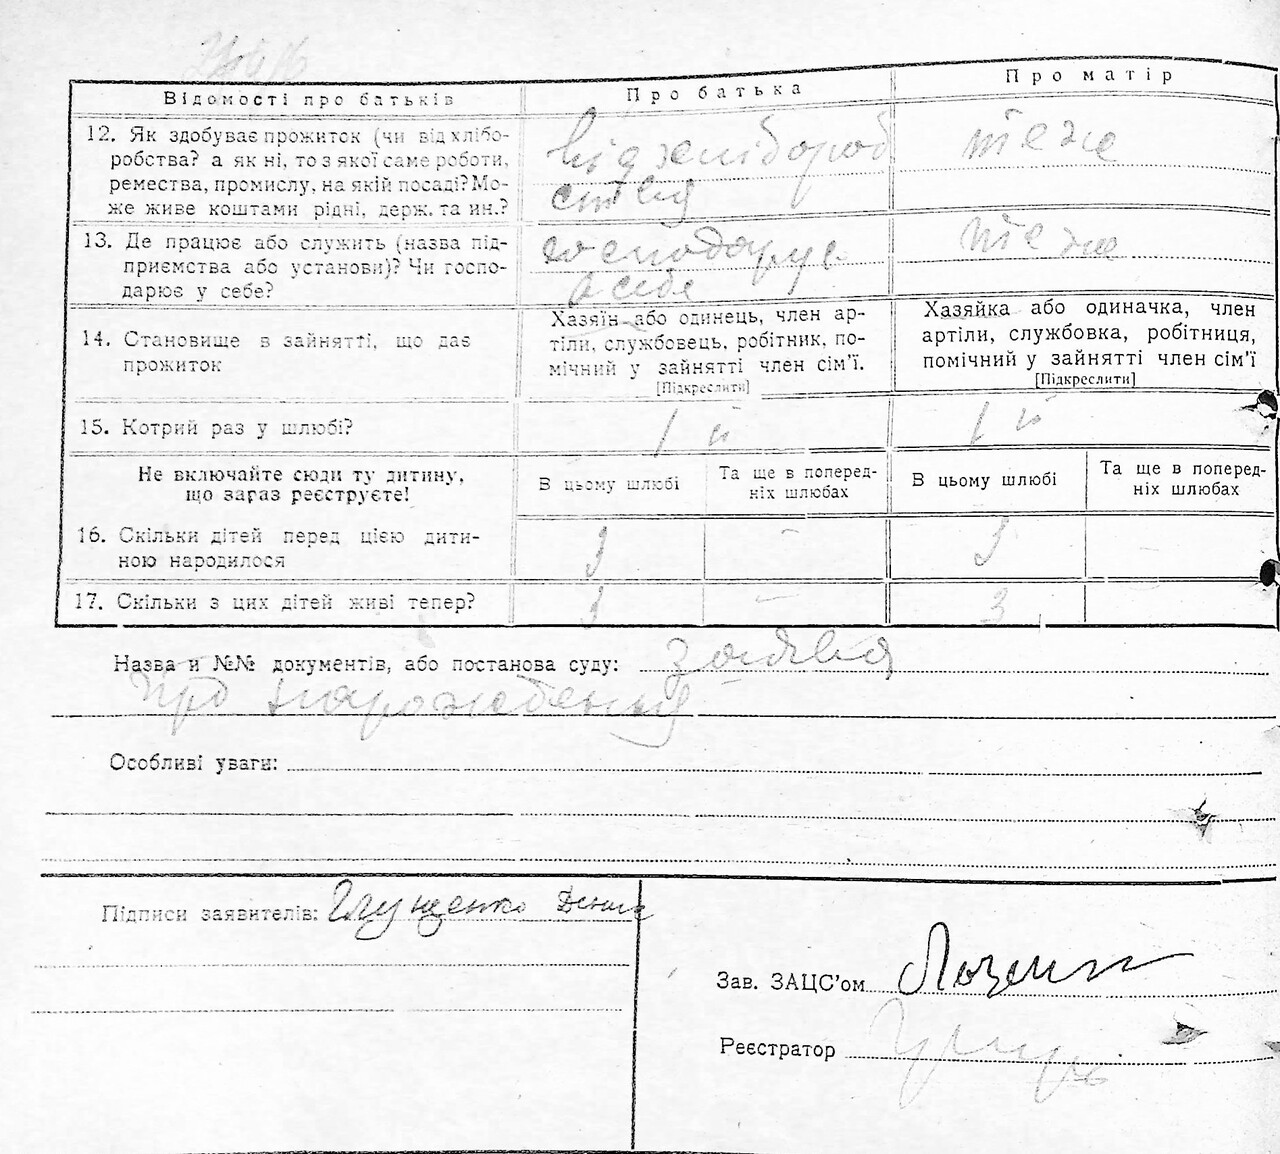 Відомості про батьків
Про батька
Про матір
12. Як здобуває прожиток (чи від хлібо-
робства? а як ні, то з якої саме роботи,
ремества, промислу, на якій посаді? Мо-
же живе коштами рідні, держ. та ин.?
від хлібороб
ства
теж
13. Де працює або служить (назва під-
приємства або установи)? Чи госпо-
дарює у себе?
господарує
в себе
теж
14. Становище в зайнятті, що дає
прожиток
Хазяїн або одинець, член ар-
тіли, службовець, робітник, по-
мічний у зайнятті член сім'ї.
[Підкреслити]
Хазяйка або одиначка, член
артіли, службовка, робітниця,
помічний у зайнятті член сім'ї
[Підкреслити]
15. Котрий раз у шлюбі?
1 й
1 й
Не включайте сюди ту дитину,
що зараз реєструєте!
В цьому шлюбі
Та ще в поперед-
ніх шлюбах
В цьому шлюбі
Та ще в поперед-
ніх шлюбах
16. Скільки дітей перед цією дити-
ною народилося
3
-
3
17. Скільки з цих дітей живі тепер?
3
-
3
Назва и №№ документів, або постанова суду: заява
про народження
Особливі уваги:
Підписи заявителів: Глущенко Денис
Зав. ЗАЦС'ом
Реєстратор